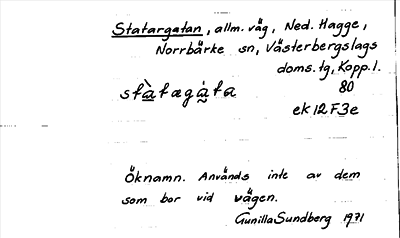 Statargatan, allm. väg, Ned. Hagge,
Norrbärke sn, Västerbergslags
doms. tg, Kopp. l.
80
ek12F3e
Öknamn. Används inte av dem
som bor vid vägen.
Gunilla Sundberg 1971